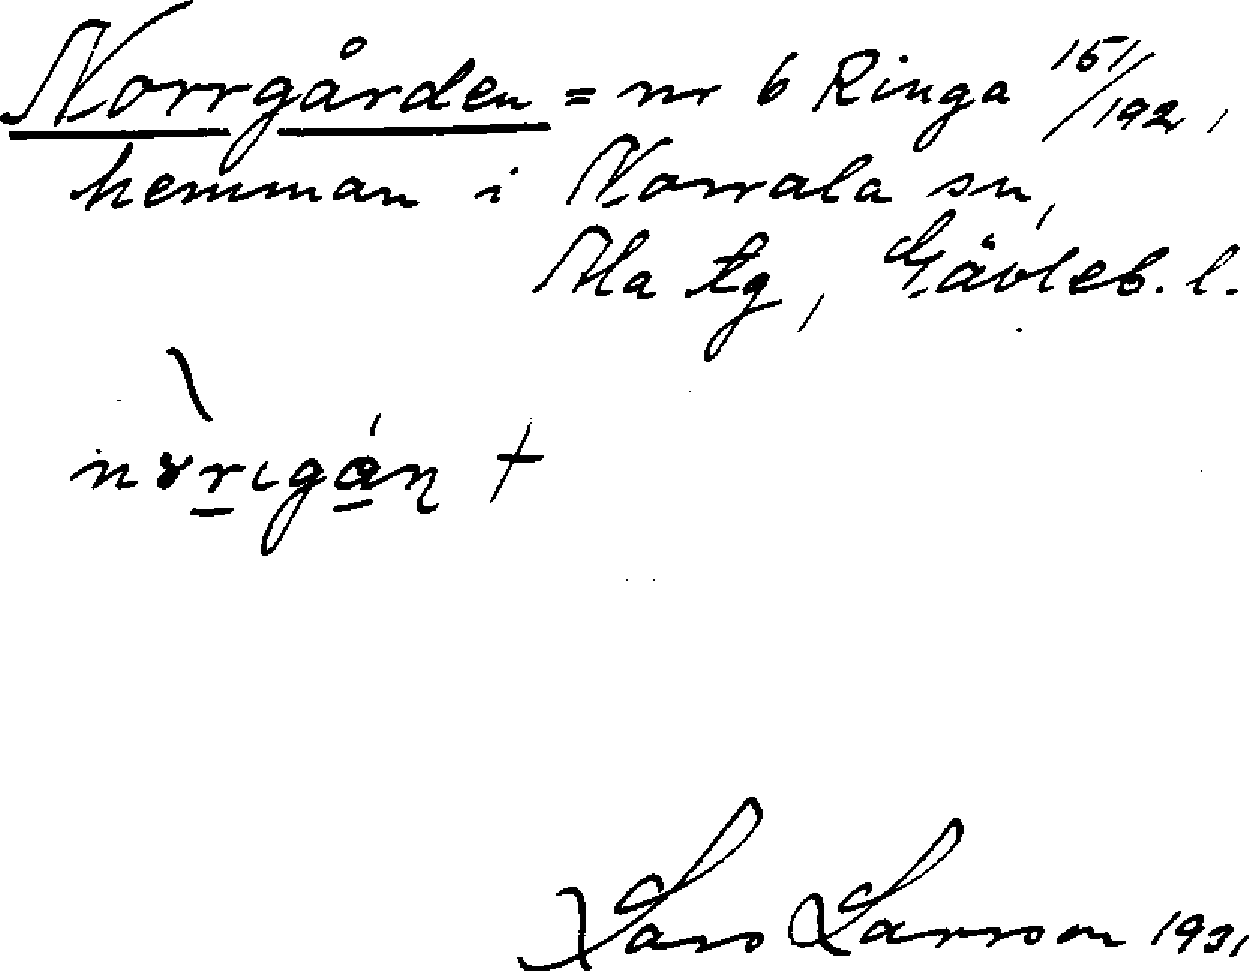 Norrgården = nr 6 Ringa 151/192,
hemman i Norrala sn,
Ala tg, Gävleb. l.
Lars Larsson 1931